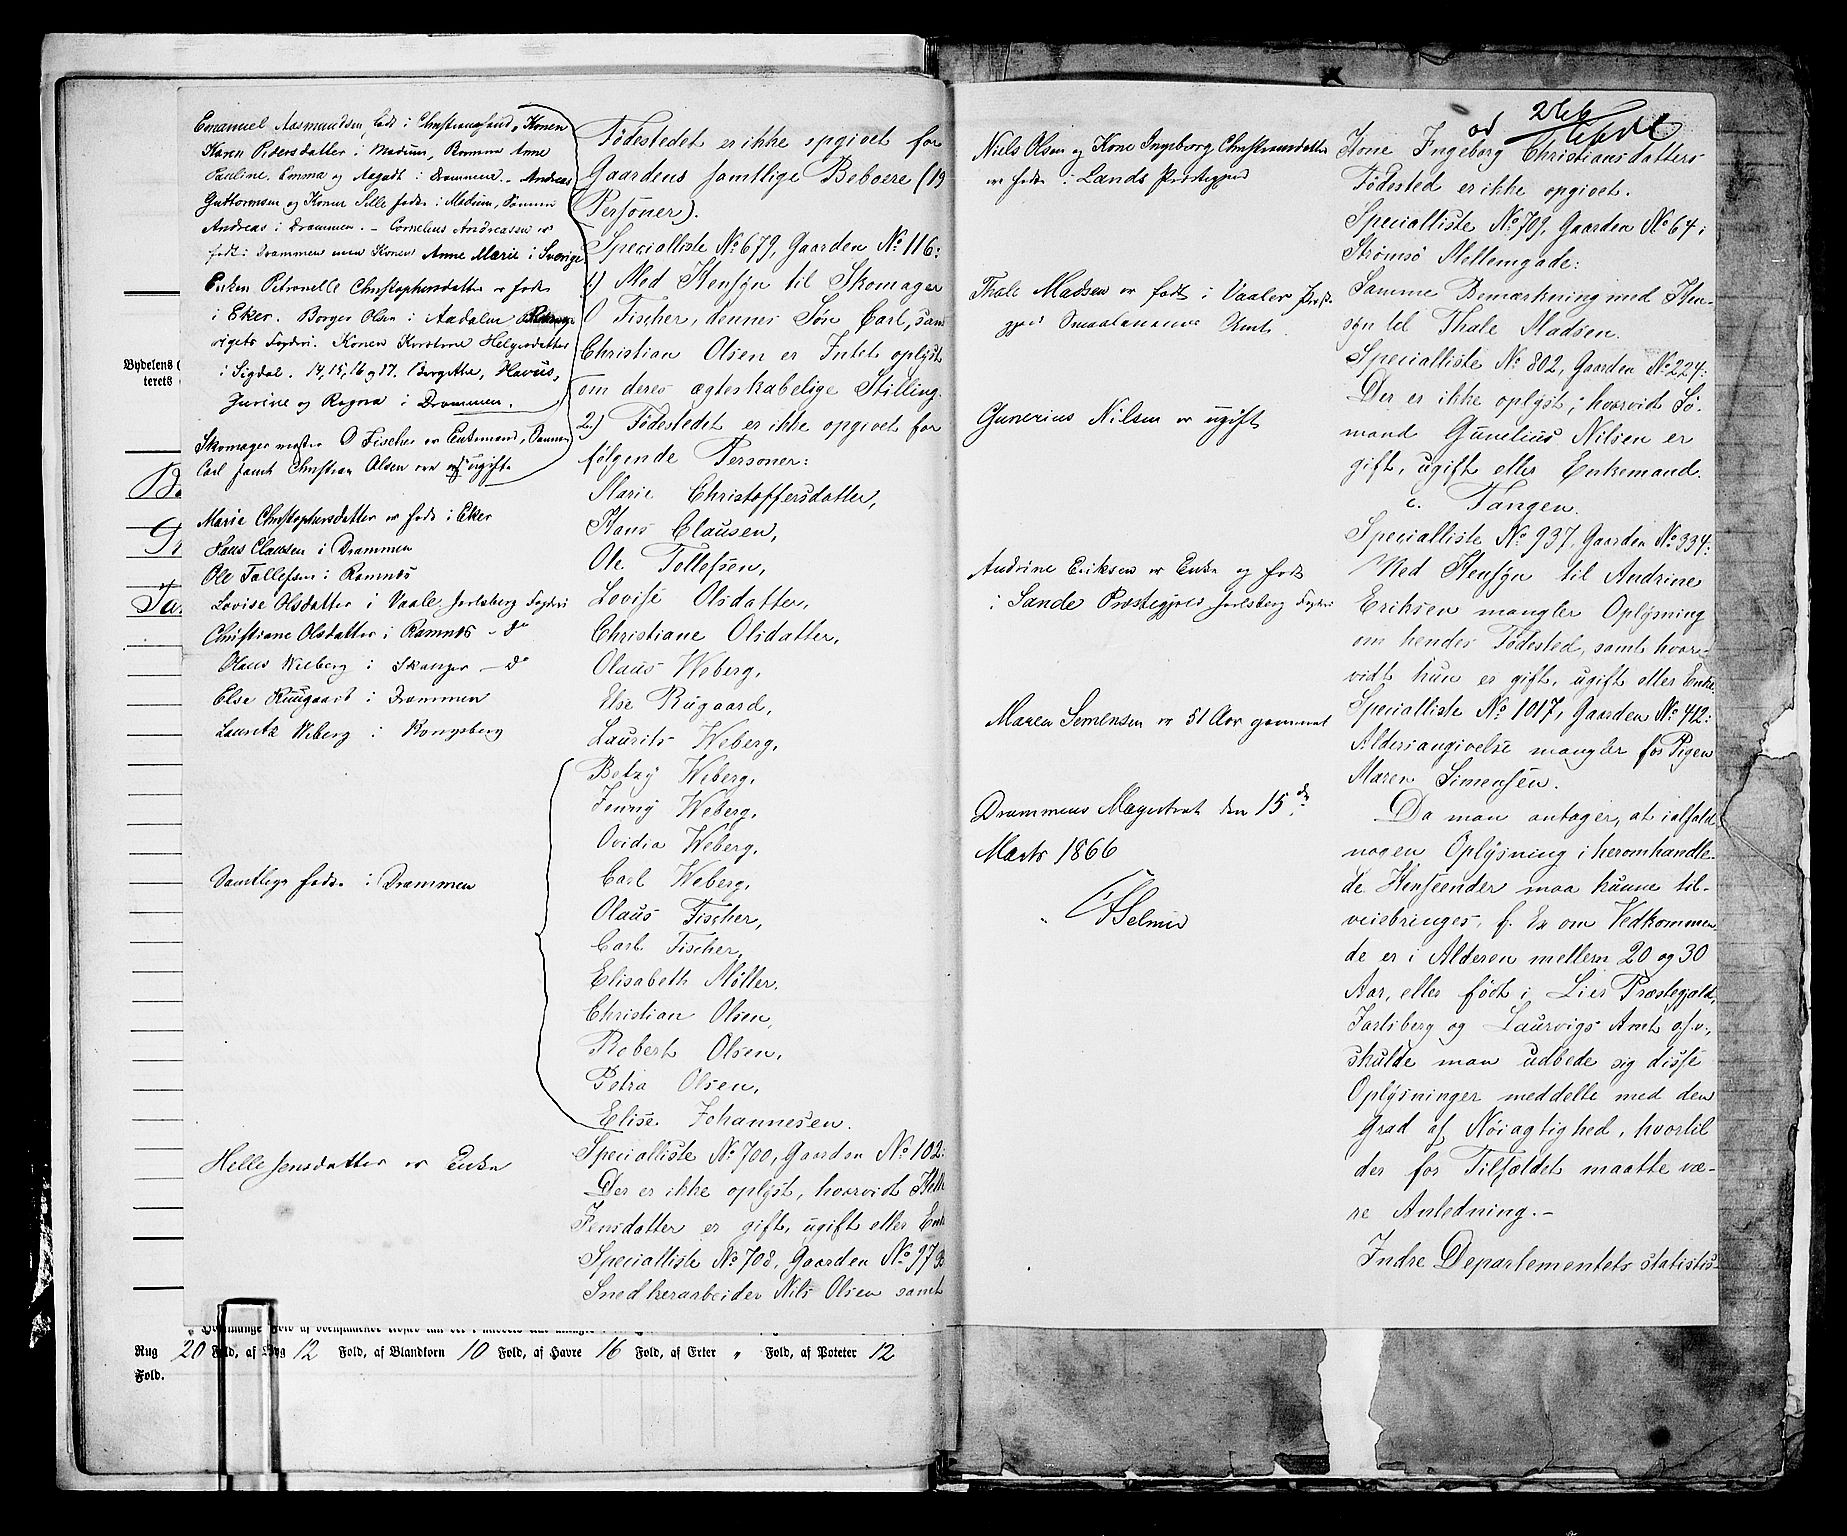 Emanuel Aasmundsen, født i Christianssand, Konen
Karen Pedersdatter i Modum, Børnene Anne
Pauline, Emma og Aagodt i Drammen. Andreas
Guttormsen og Konen Sille fødte i Modum, Sønnen
Andreas i Drammen. - Cornelius Andreassen er
født i Drammen men Konen Anne Marie i Sverige
Enken Petronelle Christophersdatter er født
i Eker. Borger Olsen i Aadalen
rigets Fogderi. Konen Karstine Helgesdatter
i Sigdal. 14, 15, 16 og 17. Borgithe, Havus,
Jurine og Ragna i Drammen.
Skomagermester O Fischer er Enkemand, Sønnen
Carl samt Christian Olsen ere ugifte
Marie Christophersdatter er født i Eker
Hans Claussen i Drammen
Ole Tollefsen i Ramnes
Lovise Olsdatter i Vaale Jarlsberg Fogderi
Christiane Olsdatter i Ramnes - do
Olaus Weberg i Skauger - do
Else Ruugaard i Drammen
Lauritz Weberg i Kongsberg
Samtlige fødte i Drammen
Helle Jensdatter er Enke
Fødestedet er ikke opgivet for
Gaardens samtlige Beboere (19
Personer).
Specialliste No 679, Gaarden No 116:
1) Med Hensyn til Skomager
O Fischer, dennes Søn Carl, samt
Christian Olsen er Intet oplyst
om deres ægteskabelige Stilling.
2) Fødestedet er ikke opgivet for
følgende Personer:
Marie Christoffersdatter,
Hans Clausen,
Ole Tollefsen,
Lovise Olsdatter,
Christiane Olsdatter,
Olaus Weberg,
Else Rugaard,
Laurits Weberg,
Betzy Weberg,
Jenny Weberg,
Ovidia Weberg,
Carl Weberg,
Olaus Fischer,
Carl Fischer,
Elisabeth Møller,
Christian Olsen,
Robert Olsen,
Petra Olsen,
Elise Johannesen.
Specialliste No 700, Gaarden No 102:
Der er ikke oplyst, hvorvidt Helle
Jensdatter er gift, ugift eller Enke
Specialliste No 708, Gaarden No 97
Snedkerarbeider Nils Olsen samt
Bydelens
terets
Rug 20 Fold, af Byg 12 Fold, af Blandkorn 10 Fold, af Havre 16 Fold, af Erter " Fold, af Poteter 12
Fold.
Niels Olsen og Kone Ingeborg Christiansdatter
er fødte i Lands Præstegjeld
Thale Madsen er født i Vaaler Præste
gjeld Smaalenenes Amt.
Gunerius Nilsen er ugift
Andrine Eriksen er Enke og født
i Sande Præstegjeld Jarlsberg Fogderi
Maren Semensen er 51 Aar gammel
Drammens Magistrat den 15de
Marts 1866
266
Kone Ingeborg Christiansdatters
Fødested er ikke opgivet.
Specialliste No 709, Gaarden No 64 i
Strømsø Mellemgade:
Samme Bemærkning med Hen-
syn til Thale Madsen.
Specialliste No 802, Gaarden No 224:
Der er ikke oplyst, hvorvidt Sø-
mand Gunelius Nilsen er
gift, ugift eller Enkemand.
c. Tangen.
Specialliste No 937, Gaarden No 334:
Med Hensyn til Andrine
Eriksen mangler Oplysning
om hendes Fødested, samt hvor-
vidt hun er gift, ugift eller Enke.
Specialliste No 1017, Gaarden No 412:
Aldersangivelse mangler for Pigen
Maren Simensen.
Da man antager, at ialfald
nogen Oplysning i heromhandle-
de Henseender maa kunne til-
veiebringes, f. Ex om Vedkommen-
de er i Alderen mellem 20 og 30
Aar, eller født i Lier Præstegjeld,
Jarlsberg og Laurvigs Amt o.s.v.,
skulde man udbede sig disse
Oplysninger meddelte med den
Grad af Nøiagtighed, hvortil
der for Tilfældet maatte væ-
re Anledning. -
Indre Departementets statistis-